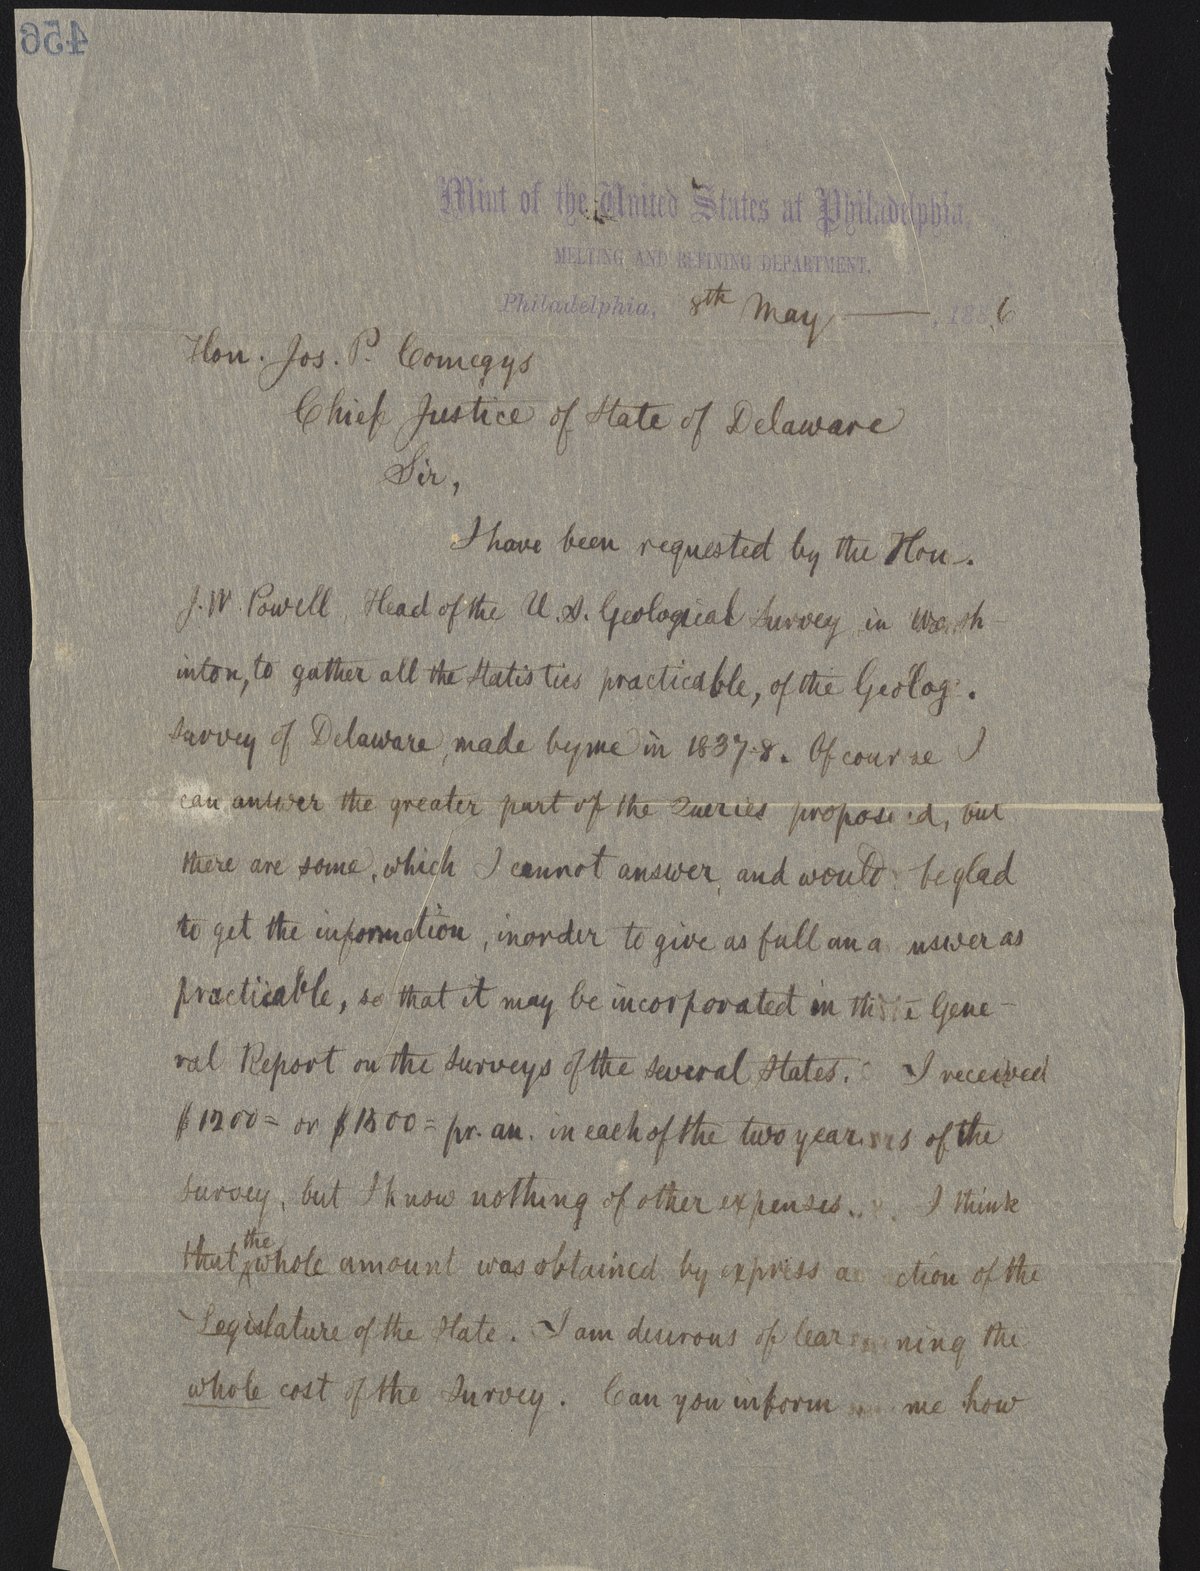 456
Mint of the United States at Philadelphia,
MELTING AND REFINING DEPARTMENT.
Philadelphia, 8th May , 1886
Hon. Jos. P. Comegys
Chief Justice of State of Delaware
Sir,
I have been requested by the Hon.
J. W. Powell, Head of the U. S. Geological Survey in Wash-
inton, to gather all the statistics practicable, of the Geolog.
Survey of Delaware, made by me in 1837-8. Of course I
can answer the greater part of the Queries proposed, but
there are some, which I cannot answer, and would be glad
to get the information, in order to give as full an answer as
practicable, so that it may be incorporated in the Gene-
ral Report on the Surveys of the several States. I received
$1200= or $1500= pr. an. in each of the two years of the
Survey, but I know nothing of other expenses. I think
that the whole amount was obtained by express action of the
Legislature of the State. I am desirous of learning the
whole cost of the Survey. Can you inform me how